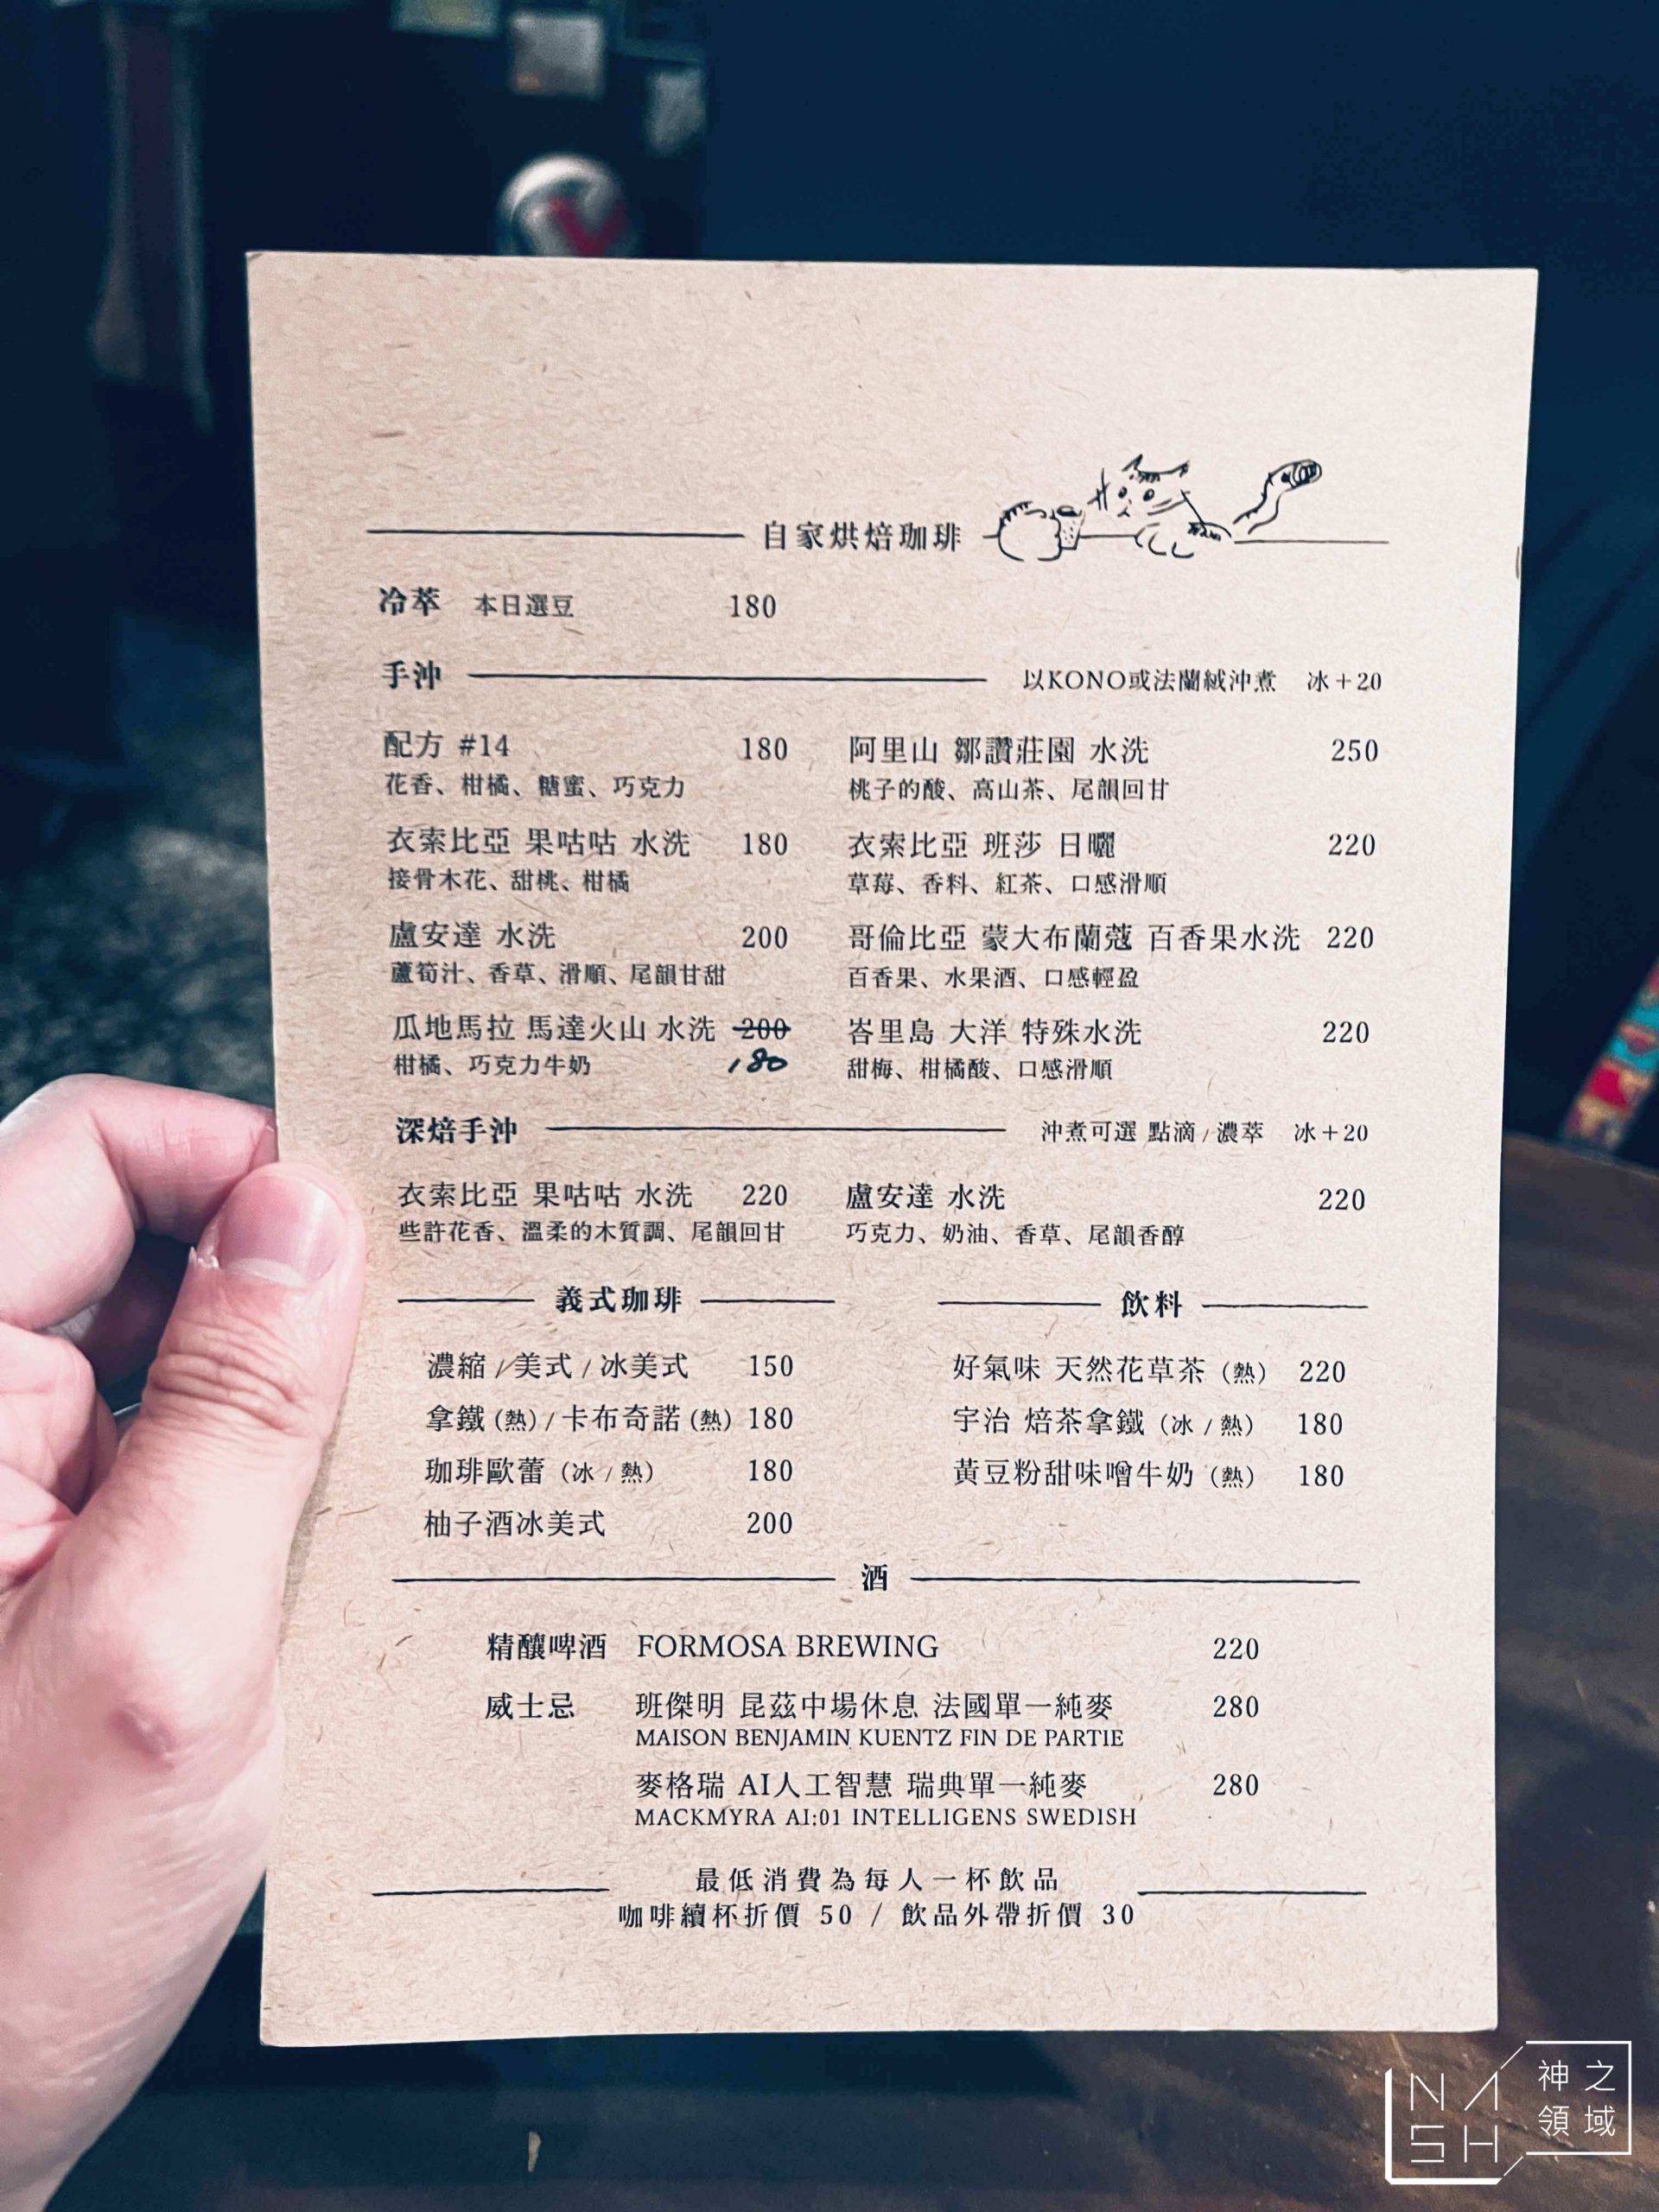 自家烘焙珈琲
冷萃 本日選豆 180
手沖 以KONO或法蘭絨沖煮 冰+20
配方 #14 180
花香、柑橘、糖蜜、巧克力
阿里山 鄒讚莊園 水洗 250
桃子的酸、高山茶、尾韻回甘
衣索比亞 果咕咕 水洗 180
接骨木花、甜桃、柑橘
衣索比亞 班莎 日曬 220
草莓、香料、紅茶、口感滑順
盧安達 水洗 200
蘆筍汁、香草、滑順、尾韻甘甜
哥倫比亞 蒙大布蘭蔻 百香果水洗 220
百香果、水果酒、口感輕盈
瓜地馬拉 馬達火山 水洗 200
柑橘、巧克力牛奶 180
峇里島 大洋 特殊水洗 220
甜梅、柑橘酸、口感滑順
深焙手沖 沖煮可選 點滴/濃萃 冰+20
衣索比亞 果咕咕 水洗 220
些許花香、溫柔的木質調、尾韻回甘
盧安達 水洗 220
巧克力、奶油、香草、尾韻香醇
義式珈琲
濃縮/美式/冰美式 150
拿鐵(熱)/卡布奇諾(熱) 180
珈琲歐蕾(冰/熱) 180
柚子酒冰美式 200
飲料
好氣味 天然花草茶(熱) 220
宇治 焙茶拿鐵(冰/熱) 180
黃豆粉甜味噌牛奶(熱) 180
酒
精釀啤酒 FORMOSA BREWING 220
威士忌 班傑明 昆茲中場休息 法國單一純麥 280
MAISON BENJAMIN KUENTZ FIN DE PARTIE
麥格瑞 AI人工智慧 瑞典單一純麥 280
MACKMYRA AI:01 INTELLIGENS SWEDISH
最低消費為每人一杯飲品
咖啡續杯折價 50 / 飲品外帶折價 30
NASH
神之
領域